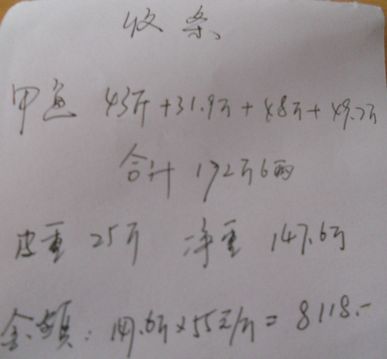 收条
甲鱼 43斤+31.9斤+48斤+49.7斤
合计 172斤6两
皮重 25斤 净重 147.6斤
金额: 147.6斤×55元/斤=8118.-